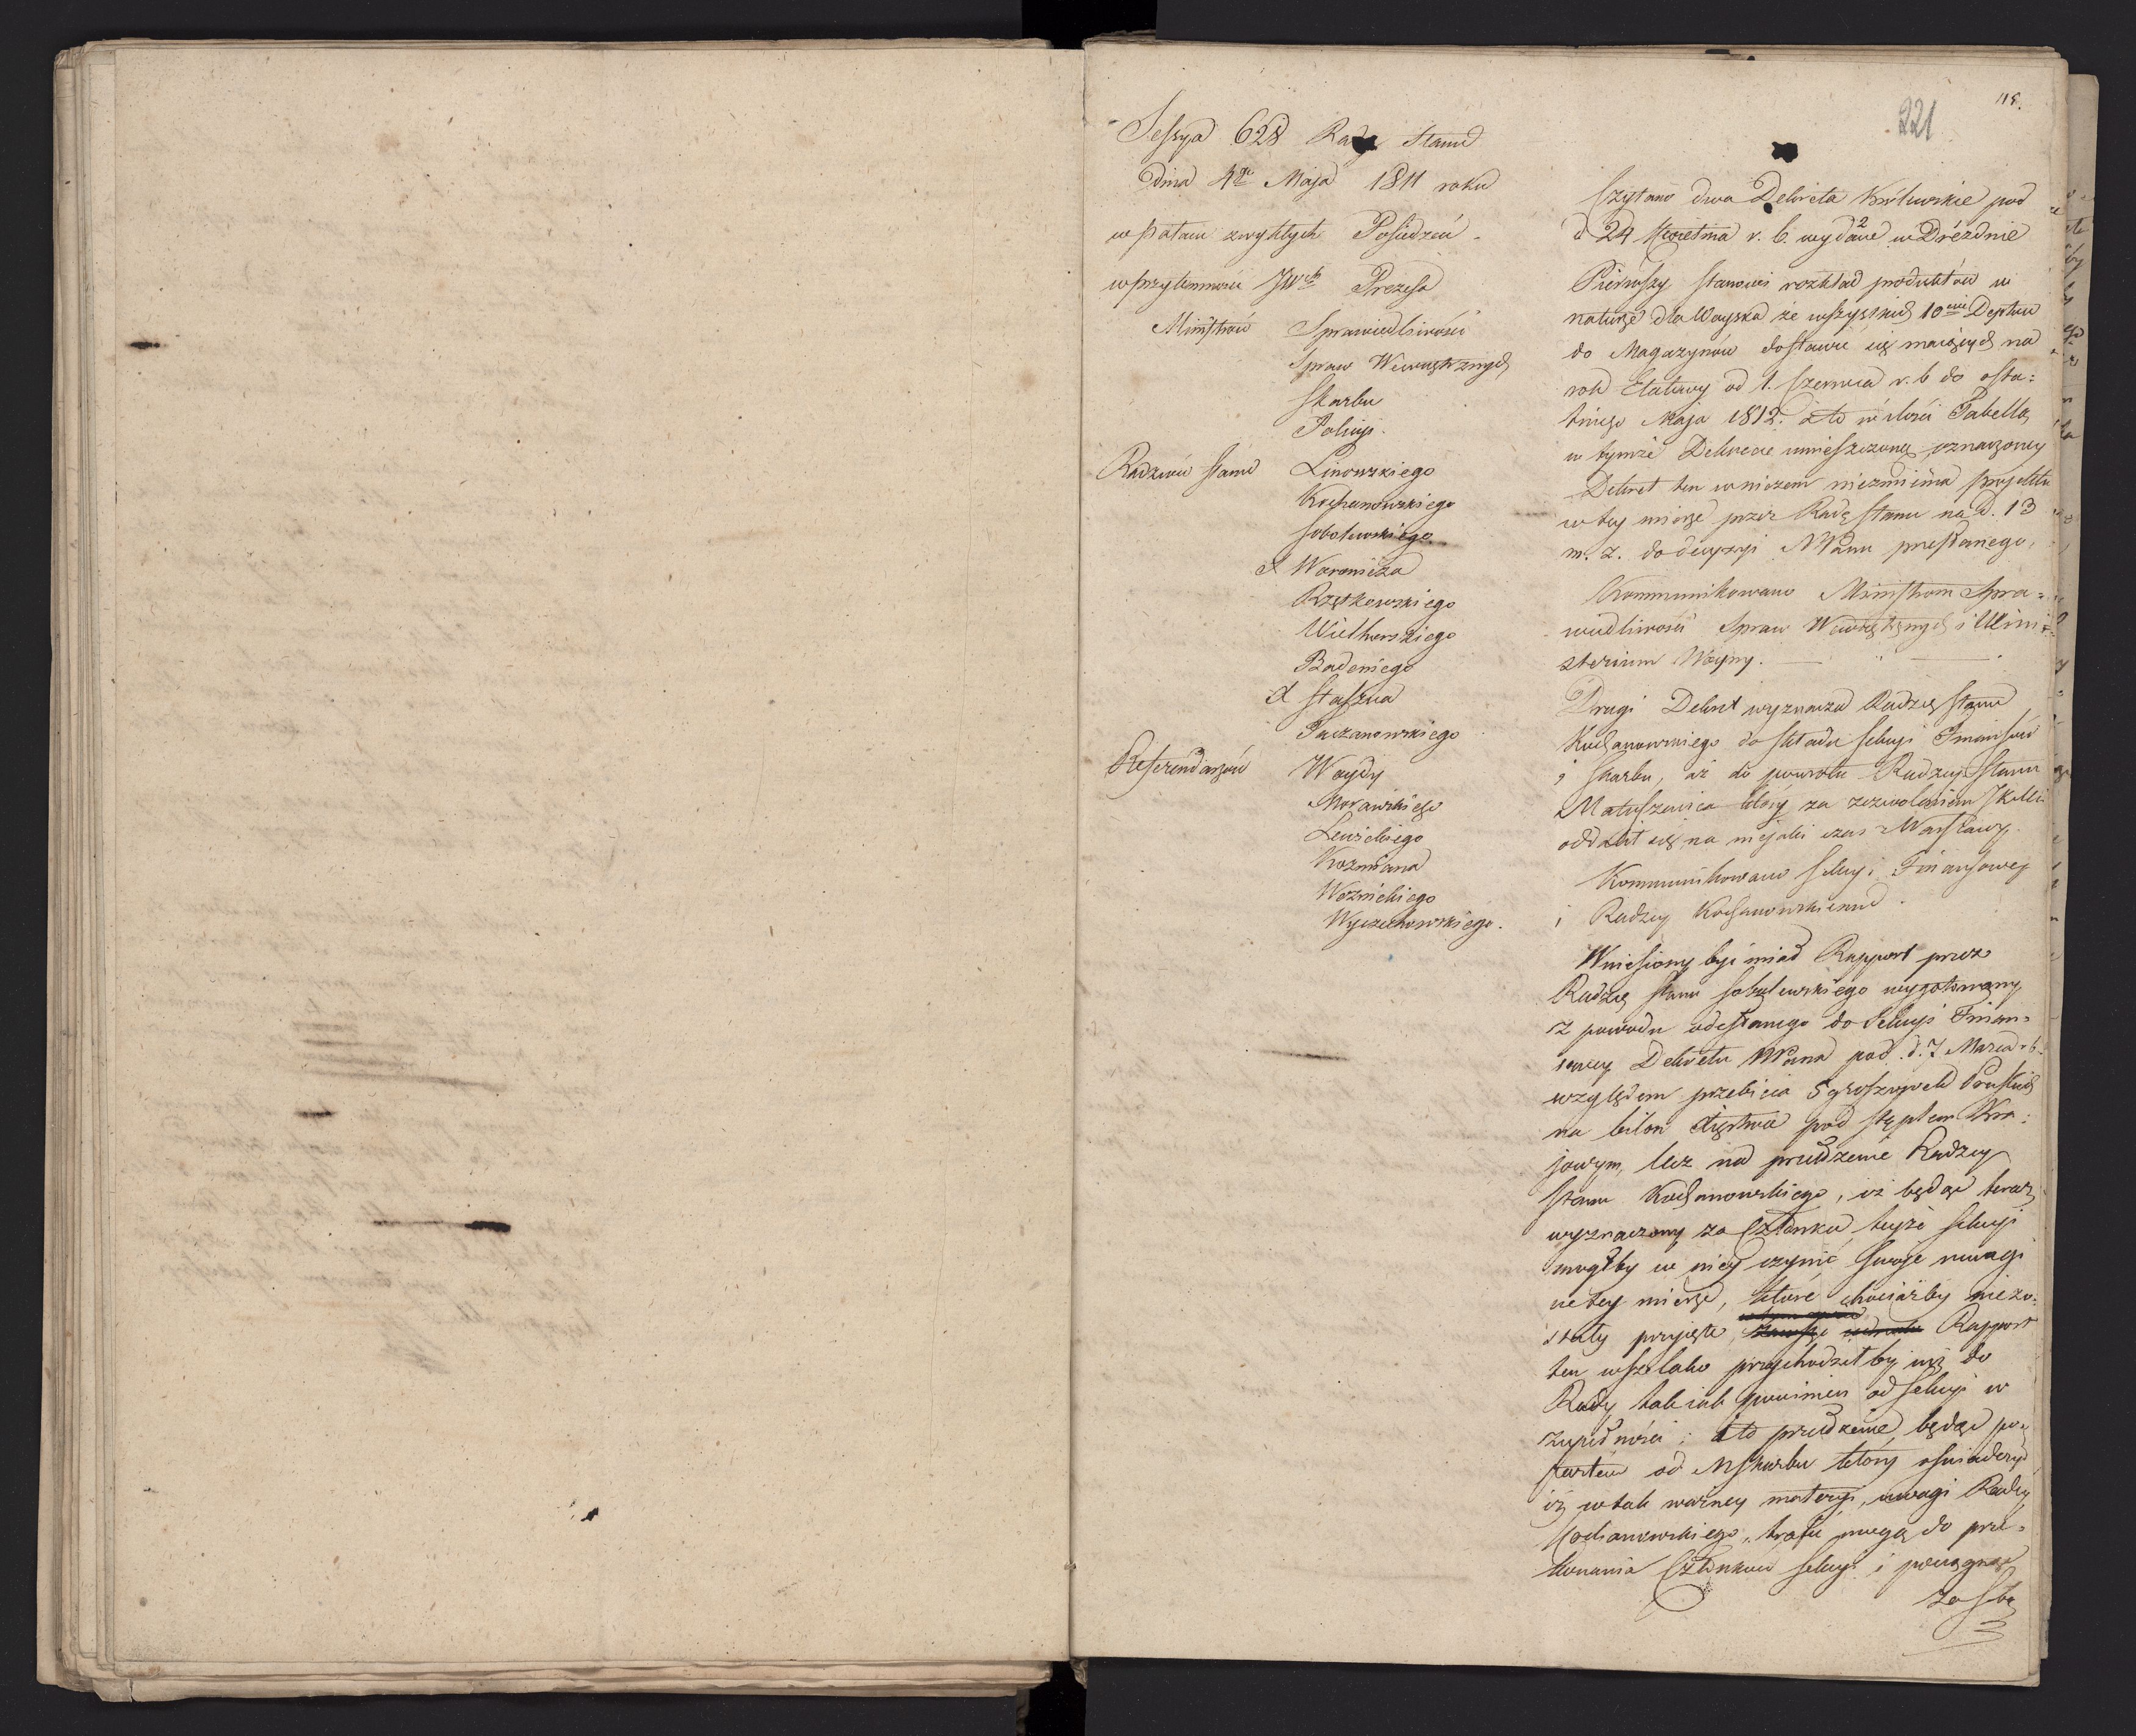 118.
221
Sessya 628 Rady Stanu
Dnia 4go Maja 1811 roku
w Pałacu zwykłych Posiedzeń.
w przytomności JWch Prezesa
Ministrów Sprawiedliwości
Spraw Wewnętrznych
Skarbu
Policyi.
Radzców Stanu Linowskiego
Kochanowskiego
Sobolewskiego
X Woronicza
Rzętkowskiego
Wielhorskiego
Badeniego
X Staszica
Paczanowskiego
Referendarzów Woydy
Morawskiego
Lewickiego
Kozmiana
Woznickiego
Wyczechowskiego.
Czytano dwa Dekreta Królewskie pod
d 24 Kwietnia r. b. wydane w Dreźnie
Pierwszy stanowi rozkład produktów w
naturze dla Woyska ze wszystkich 10ciu Deptów
do Magazynów dostawić się maiących na
rok Etatowy od 1. Czerwca r. b do osta-
tniego Maja 1812. a to w ilości Tabellą
w tymże Dekrecie umieszczoną oznaczoney
Dekret ten w niczem niezmienia projektu
w tey mierze przez Radę Stanu na d. 13
m. z. do decyzyi NPanu przesłanego.
Kommunikowano Ministrom Spra-
wiedliwości Spraw Wewnętrznych i Mini-
sterium Woyny.
Drugi Dekret wyznacza Radzcę Stanu
Kochanowskiego do składu Sekcyi Finansów
i Skarbu, aż do powrotu Radzcy Stanu
Matuszewica który za zezwoleniem JKMci
oddalił się na niejaki czas z Warszawy.
Kommunikowano Sekcyi Finansowej
i Radzcy Kochanowskiemu.
Wniesiony być miał Rapport przez
Radzcę Stanu Sobolewskiego wygotowany
z powodu odesłanego do Sekcyi Finan-
sowey Dekretu NPana pod d. 7 Marca r b.
względem przebicia 5 groszowek Pruskich
na bilon Xięstwa pod stęplem Kra-
jowym, lecz na przełożenie Radzcy
Stanu Kochanowskiego, iż będąc teraz
wyznaczony za Członka teyże Sekcyi
mogłby w niey czynić swoje uwagi
w tey mierze, które chociażby niezo-
stały przyjęte, Rapport
ten wszelako przychodziłby iuż do
Rady tak iak powinien od Sekcyi w
zupełności; a to przełożenie będąc po-
partem od MSkarbu który oświadczył
iż w tak ważney materyi, uwagi Radzcy
Kochanowskiego, trafić mogą do prze-
konania Członków Sekcyi i pociągnąć
za sobą